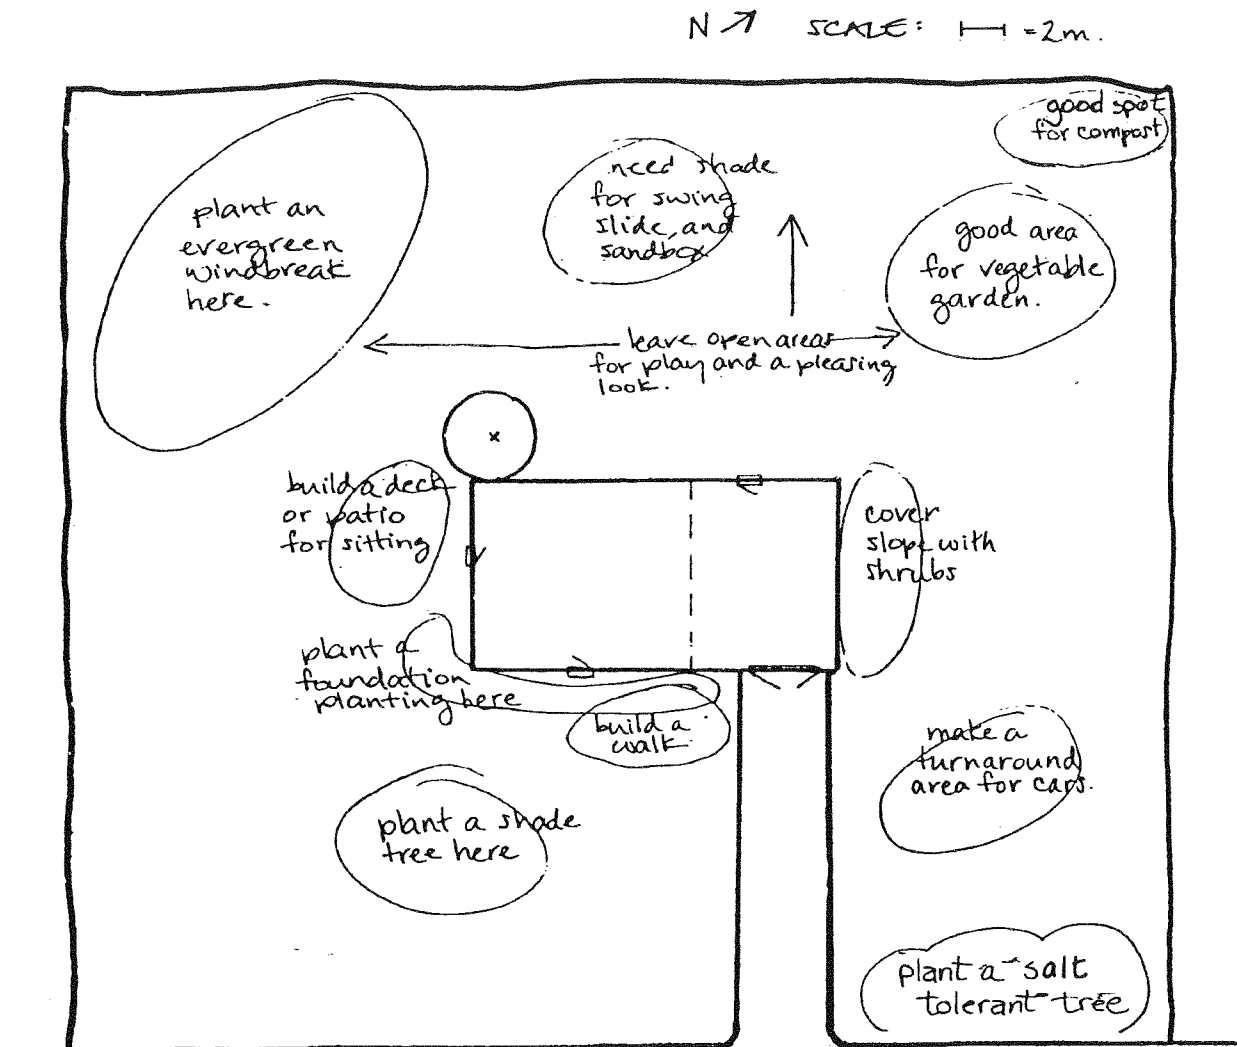 N ↗ SCALE: ⊢⊣ = 2m.
good spot
for compost
need shade
for swing
slide, and
sandbox
plant an
evergreen
windbreak
here.
good area
for vegetable
garden.
leave open areas
for play and a pleasing
look.
x
build a deck
or patio
for sitting
cover
slope with
shrubs
plant a
foundation
planting here
build a
walk
make a
turnaround
area for cars.
plant a shade
tree here
plant a salt
tolerant tree